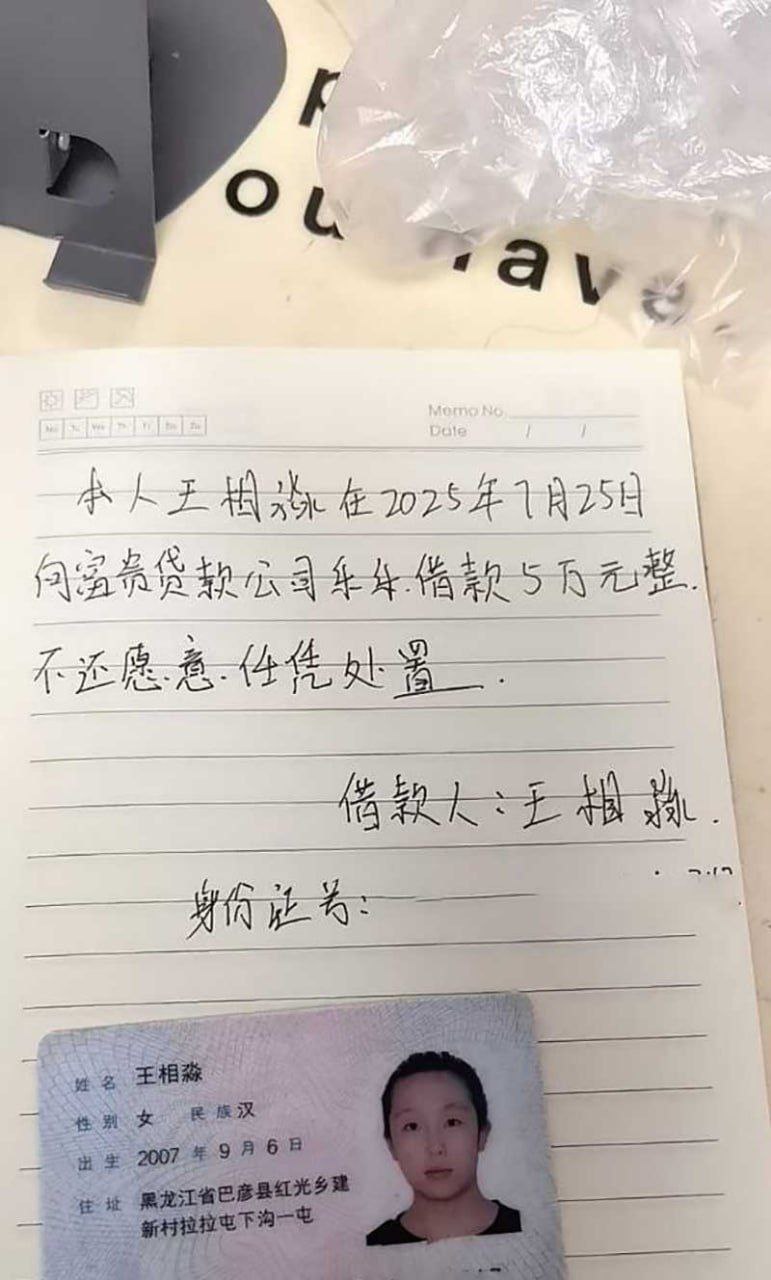 ou
ave
Memo No.
Date / /
本人王相淼在2025年7月25日
向富贵贷款公司乐乐.借款5万元整.
不还愿意.任凭处置.
借款人:王相淼.
身份证号:
姓名 王相淼
性别 女 民族 汉
出生 2007 年 9 月 6 日
住址 黑龙江省巴彦县红光乡建
新村拉拉屯下沟一屯